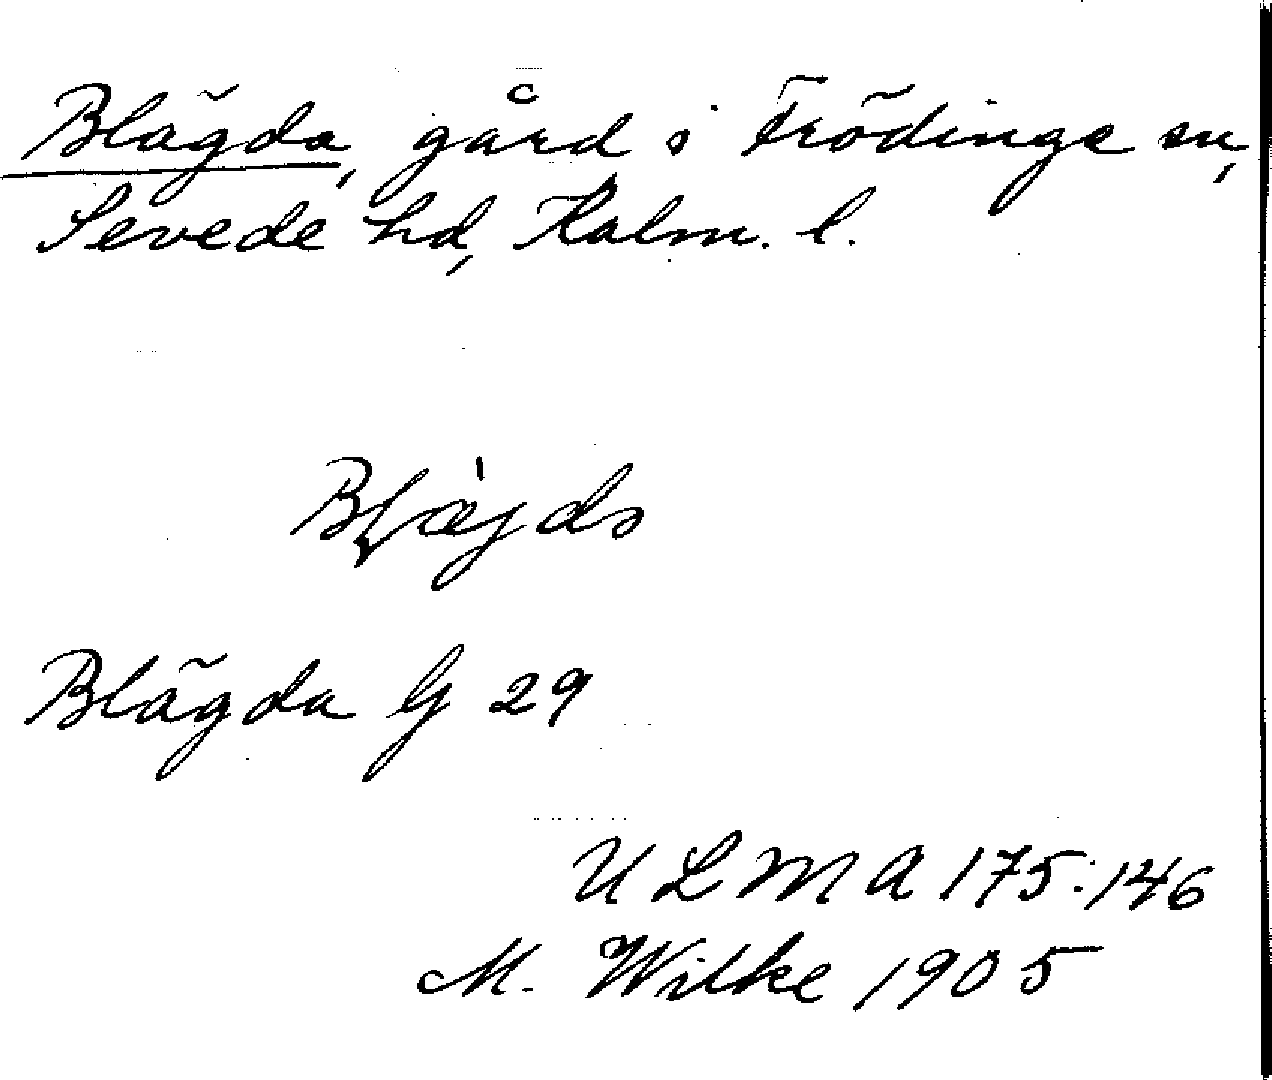 Blägda, gård i Frödinge sn,
Sevede hd, Kalm. l.
Blägda G 29
U L M A 175:146
M. Wilke 1905